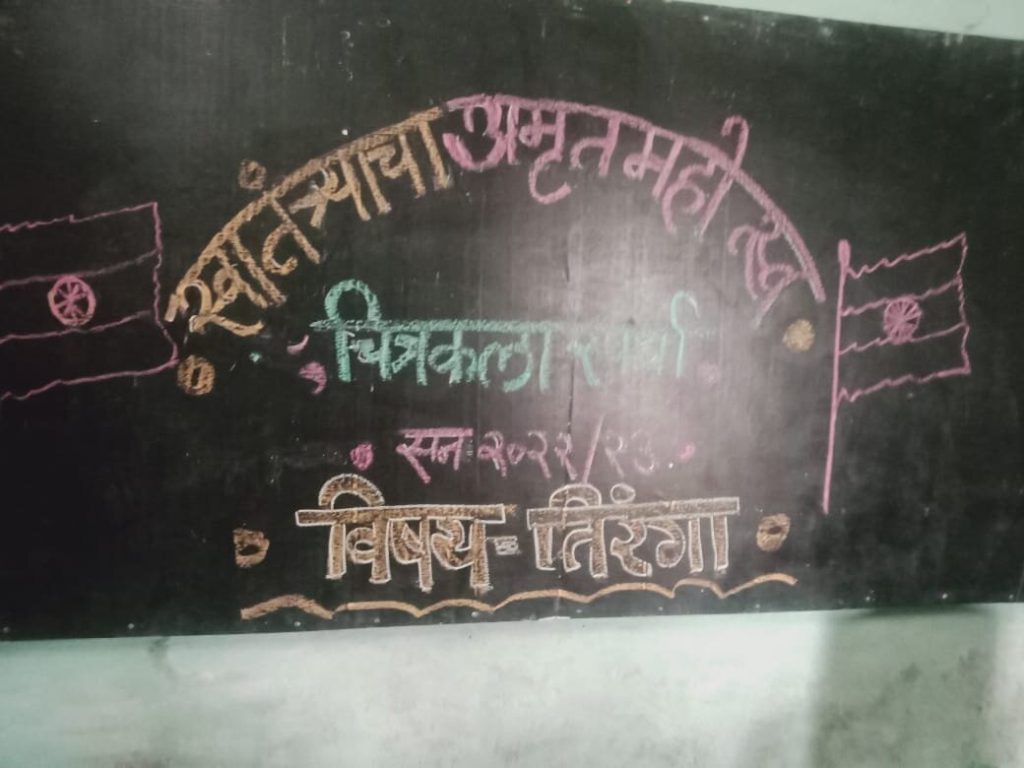 स्वातंत्र्याचा अमृत महोत्सव
चित्रकला स्पर्धा
सन २०२२/२३
विषय - तिरंगा